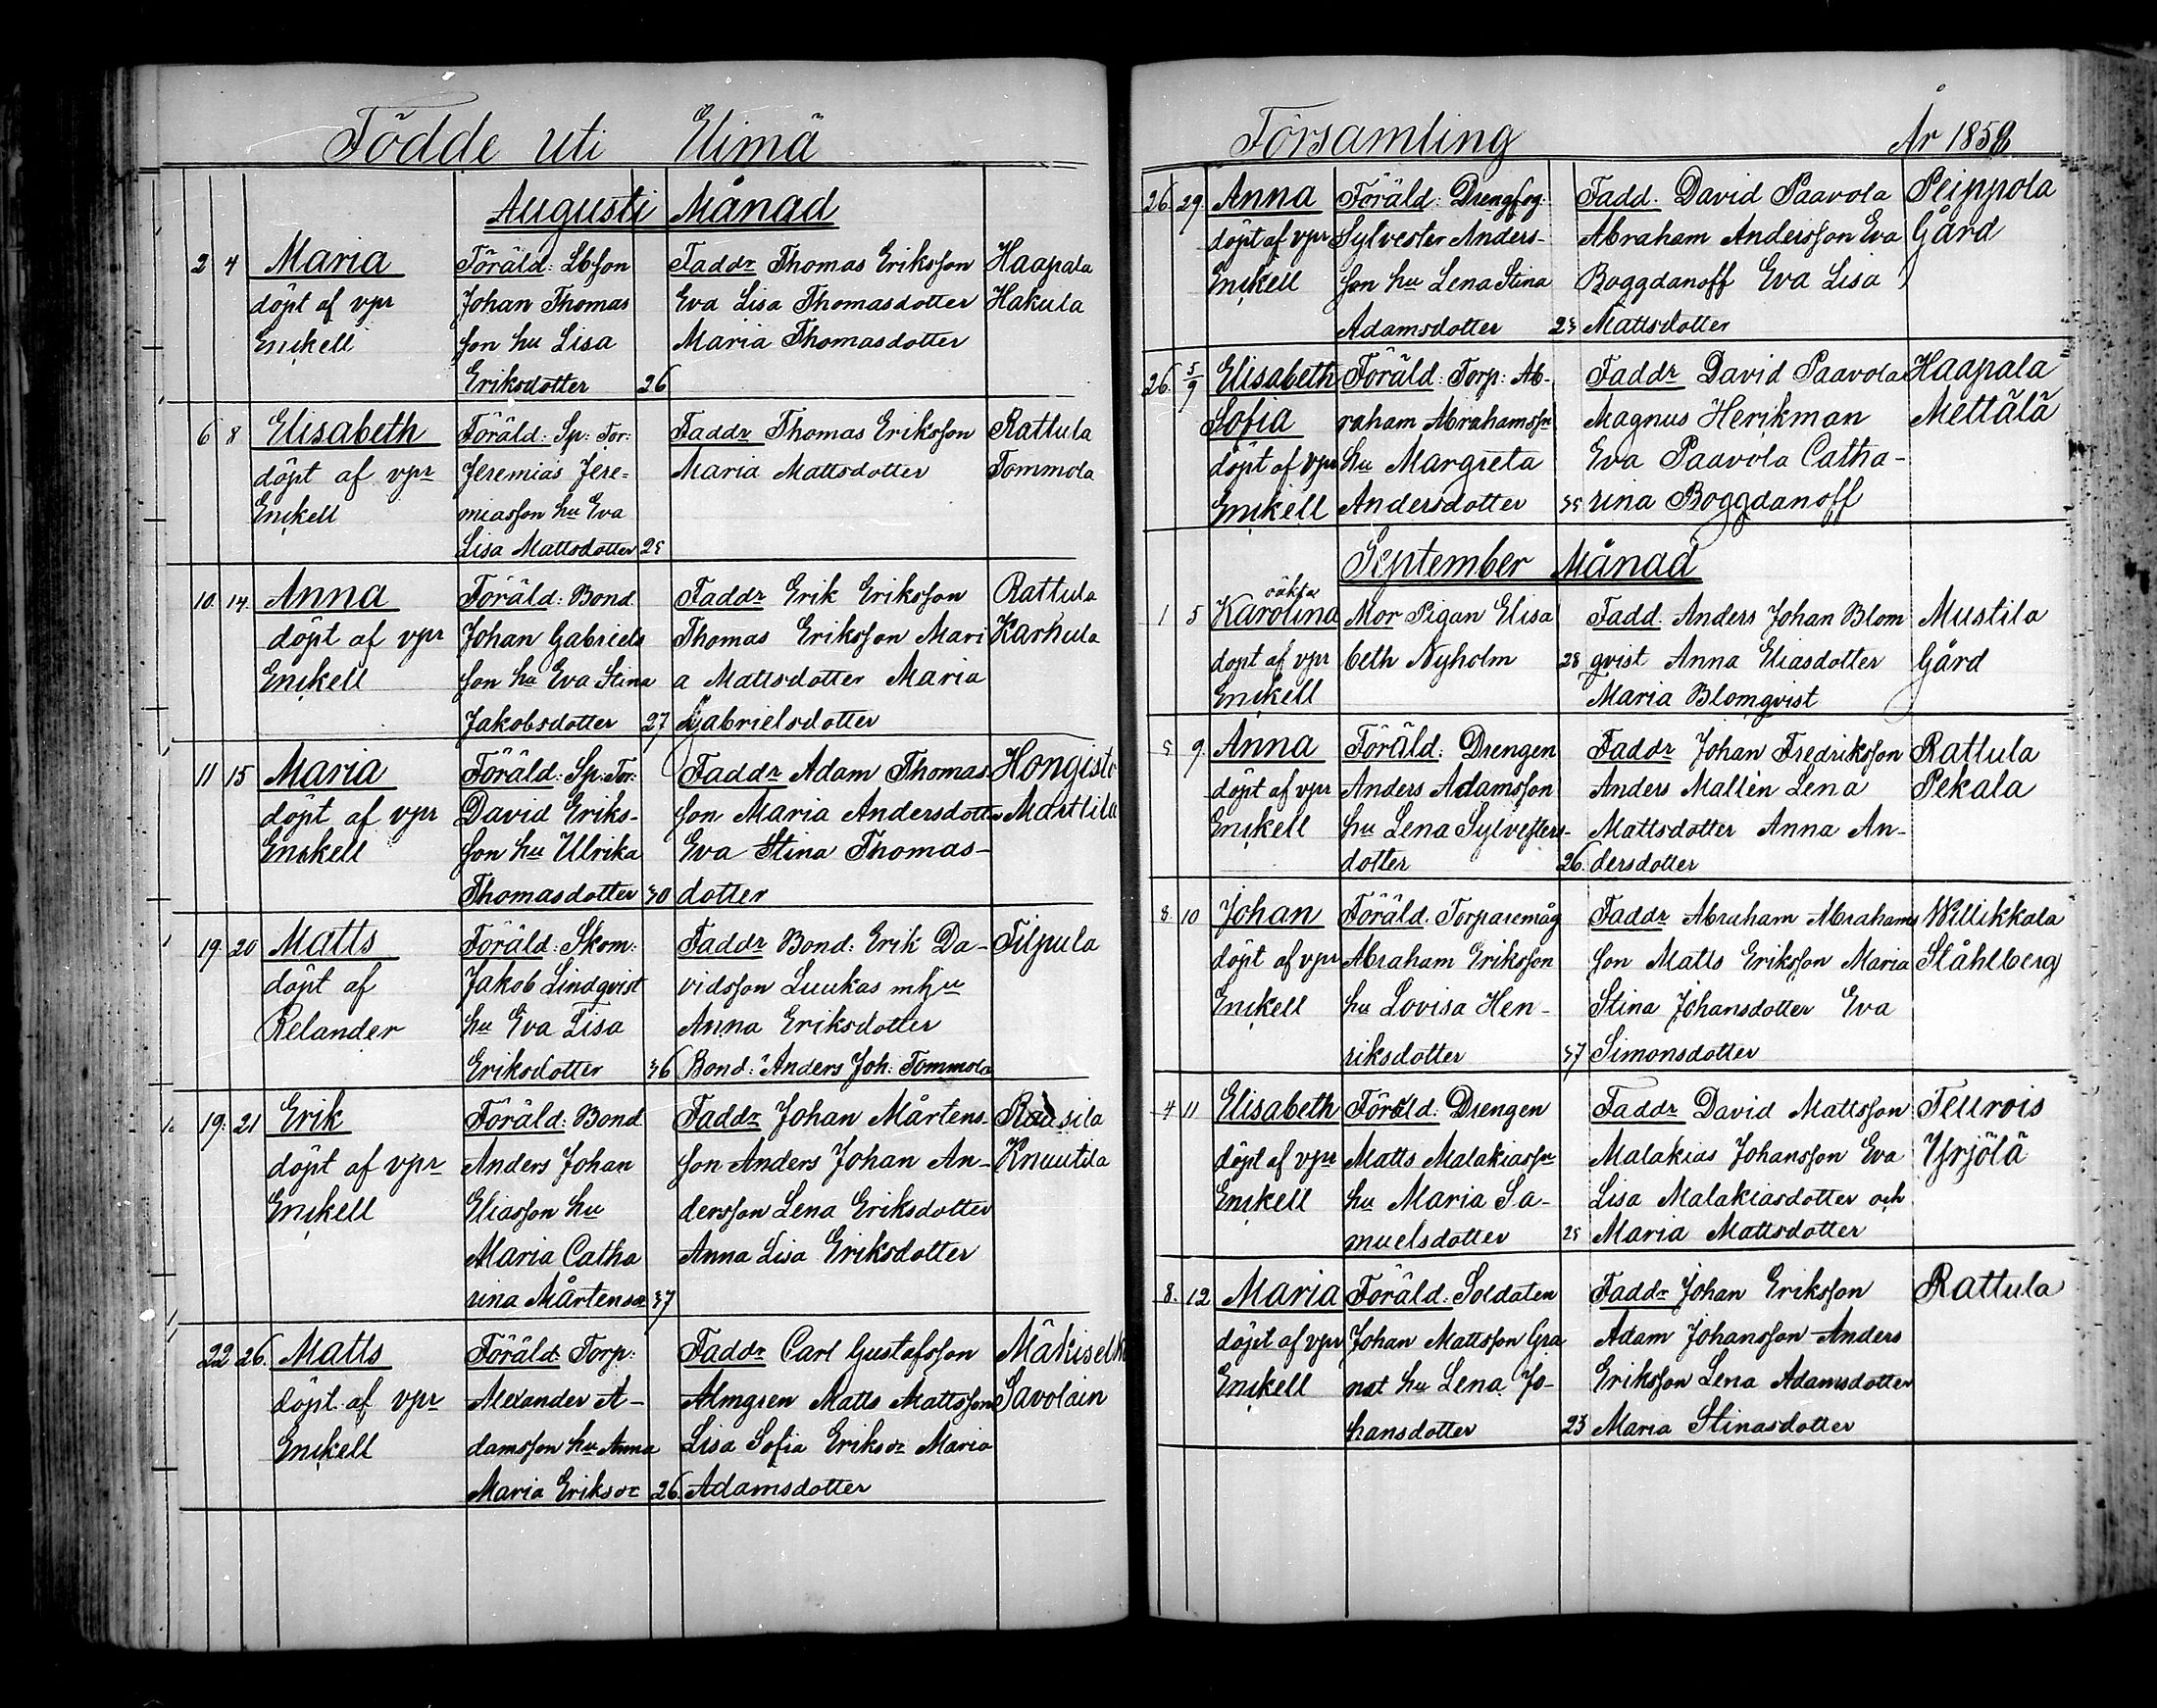 Födde uti Elimä
Augusti Månad
2 4 Maria Föräld: Lbson Faddr Thomas Eriksson Haapala
döpt af vpr Johan Thomas Eva Lisa Thomasdotter Hakula
Enckell son hu Lisa Maria Thomasdotter
Eriksdotter 26
6 8 Elisabeth Föräld: Sp: Tor: Faddr Thomas Eriksson Rattula
döpt af vpr Jeremias Jere= Maria Mattsdotter Tommola
Enckell miasson hu Eva
Lisa Mattsdotter 25
10. 14. Anna Föräld: Bond. Faddr Erik Eriksson Rattula
döpt af vpr Johan Gabriels Thomas Eriksson Mari Karhula
Enckell son hu Eva Stina a Mattsdotter Maria
Jakobsdotter 27 Gabrielsdotter
11 15 Maria Föräld: Sp: Tor: Faddr Adam Thomas- Hongisto
döpt af vpr David Eriks- son Maria Andersdotter Marttila
Enckell son hu Ulrika Eva Stina Thomas-
Thomasdotter 30 dotter
19. 20 Matts Föräld: Skom: Faddr Bond: Erik Da- Tilpula
döpt af Jakob Lindqvist vidsson Luukas mhu
Relander hu Eva Lisa Anna Eriksdotter
Eriksdotter 36 Bond: Anders Joh: Tommola
19. 21 Erik Föräld: Bond Faddr Johan Mårtens- Raussila
döpt af vpr Anders Johan son Anders Johan An- Knuutila
Enckell Eliasson hu dersson Lena Eriksdotter
Maria Catha Anna Lisa Eriksdotter
rina Mårtensdr 37
22 26. Matts Föräld: Torp: Faddr Carl Gustafsson Mäkiselkä
döpt af vpr Alexander A- Almgren Matts Mattsson Savolain
Enckell damsson hu Anna Lisa Sofia Eriksdr Maria
Maria Eriksdr 26. Adamsdotter
Församling År 1858
26. 29. Anna Föräld: Drengfog: Fadd. David Paavola Peippola
döpt af vpr Sylvester Anders- Abraham Andersson Eva Gård
Enckell son hu Lena Stina Boggdanoff Eva Lisa
Adamsdotter 25 Mattsdotter
26. 5/9 Elisabeth Föräld: Torp: Ab- Faddr David Paavola Haapala
Sofia raham Abrahamssn Magnus Herikman Mettälä
döpt af vpr hu Margreta Eva Paavola Catha-
Enckell Andersdotter 35 rina Boggdanoff
September Månad
oäkta
1 5 Karolina Mor Pigan Elisa Fadd. Anders Johan Blom Mustila
döpt af vpr beth Nyholm 28 qvist Anna Eliasdotter Gård
Enckell Maria Blomqvist
5. 9. Anna Föräld: Drengen Faddr Johan Fredriksson Rattula
döpt af vpr Anders Adamsson Anders Mallén Lena Pekala
Enckell hu Lena Sylvesters- Mattsdotter Anna An-
dotter 26. dersdotter
8. 10 Johan Föräld. Torparemåg Faddr Abraham Abrahams Willikkala
döpt af vpr Abraham Eriksson son Matts Eriksson Maria Ståhlberg
Enckell hu Lovisa Hen- Stina Johansdotter Eva
riksdotter 37 Simonsdotter
4 11 Elisabeth Föräld: Drengen Faddr David Mattsson Teurois
döpt af vpr Matts Malakiassn Malakias Johansson Eva Yrjölä
Enckell hu Maria Sa- Lisa Malakiasdotter och
muelsdotter 25 Maria Mattsdotter
8. 12 Maria Föräld: Soldaten Faddr Johan Eriksson Rattula
döpt af vpr Johan Mattsson Gra Adam Johansson Anders
Enckell nat hu Lena Jo- Eriksson Lena Adamsdotter
hansdotter 23 Maria Stinasdotter